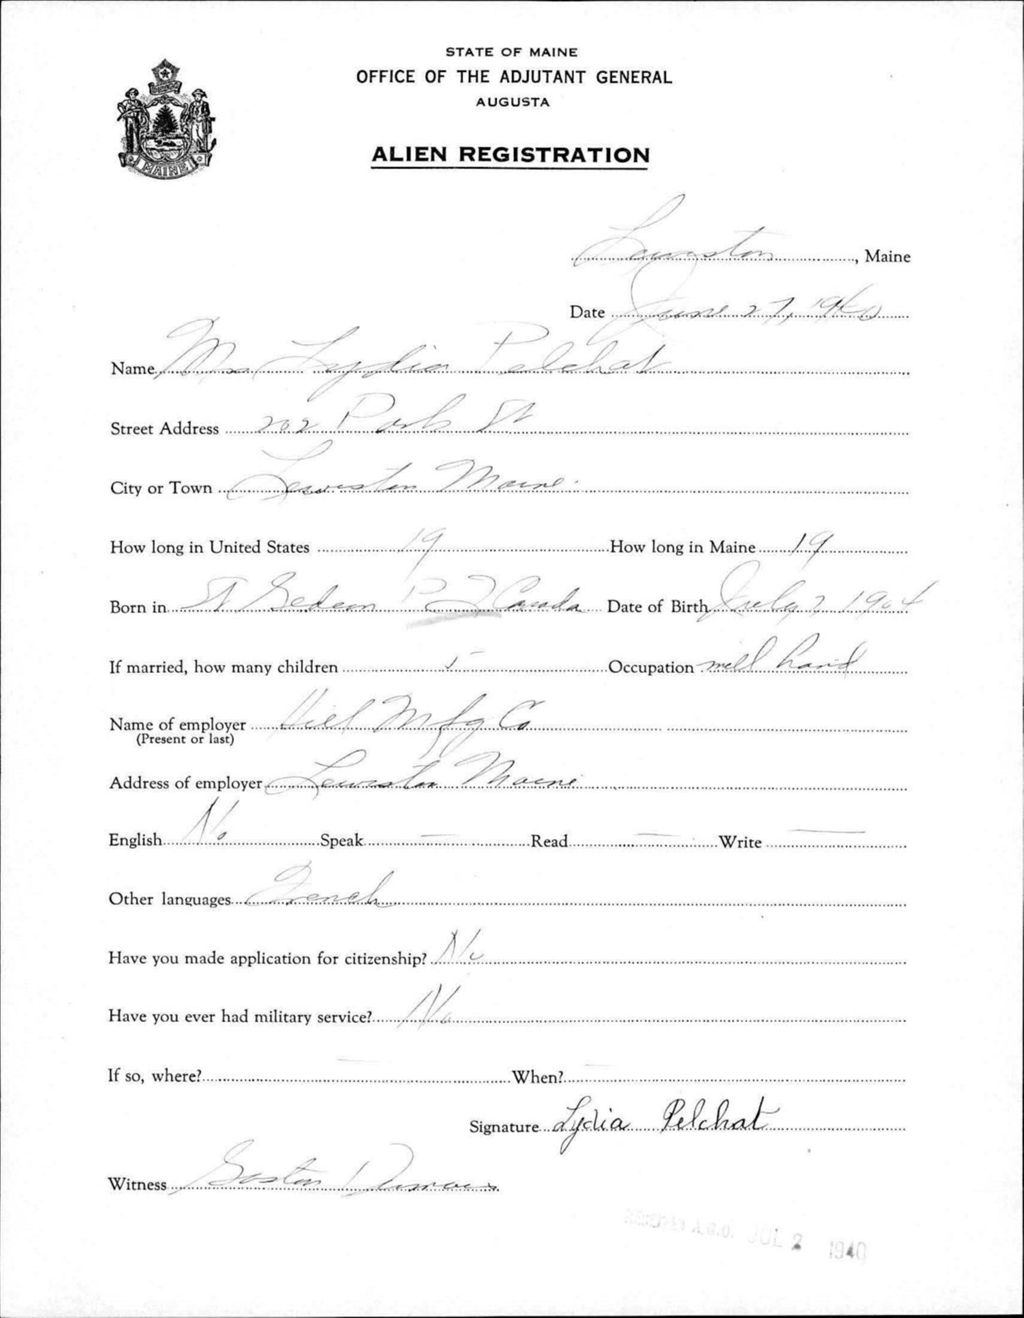 STATE OF MAINE
OFFICE OF THE ADJUTANT GENERAL
AUGUSTA
ALIEN REGISTRATION
MAINE
Lewiston, Maine
Date June 27, 1940
Name Mrs Lydia Pelchat
Street Address 202 Park St
City or Town Lewiston Maine.
How long in United States 19 How long in Maine 19
Born in St Gedeon P Q Canada Date of Birth July 2 1904
If married, how many children 5 Occupation mill hand
Name of employer Hill Mfg Co
(Present or last)
Address of employer Lewiston Maine
English No Speak — Read — Write —
Other languages French
Have you made application for citizenship? No
Have you ever had military service? No
If so, where? — When? —
Signature Lydia Pelchat
Witness Gaston Dumais
RECEIVED A.G.O. JUL 2 1940